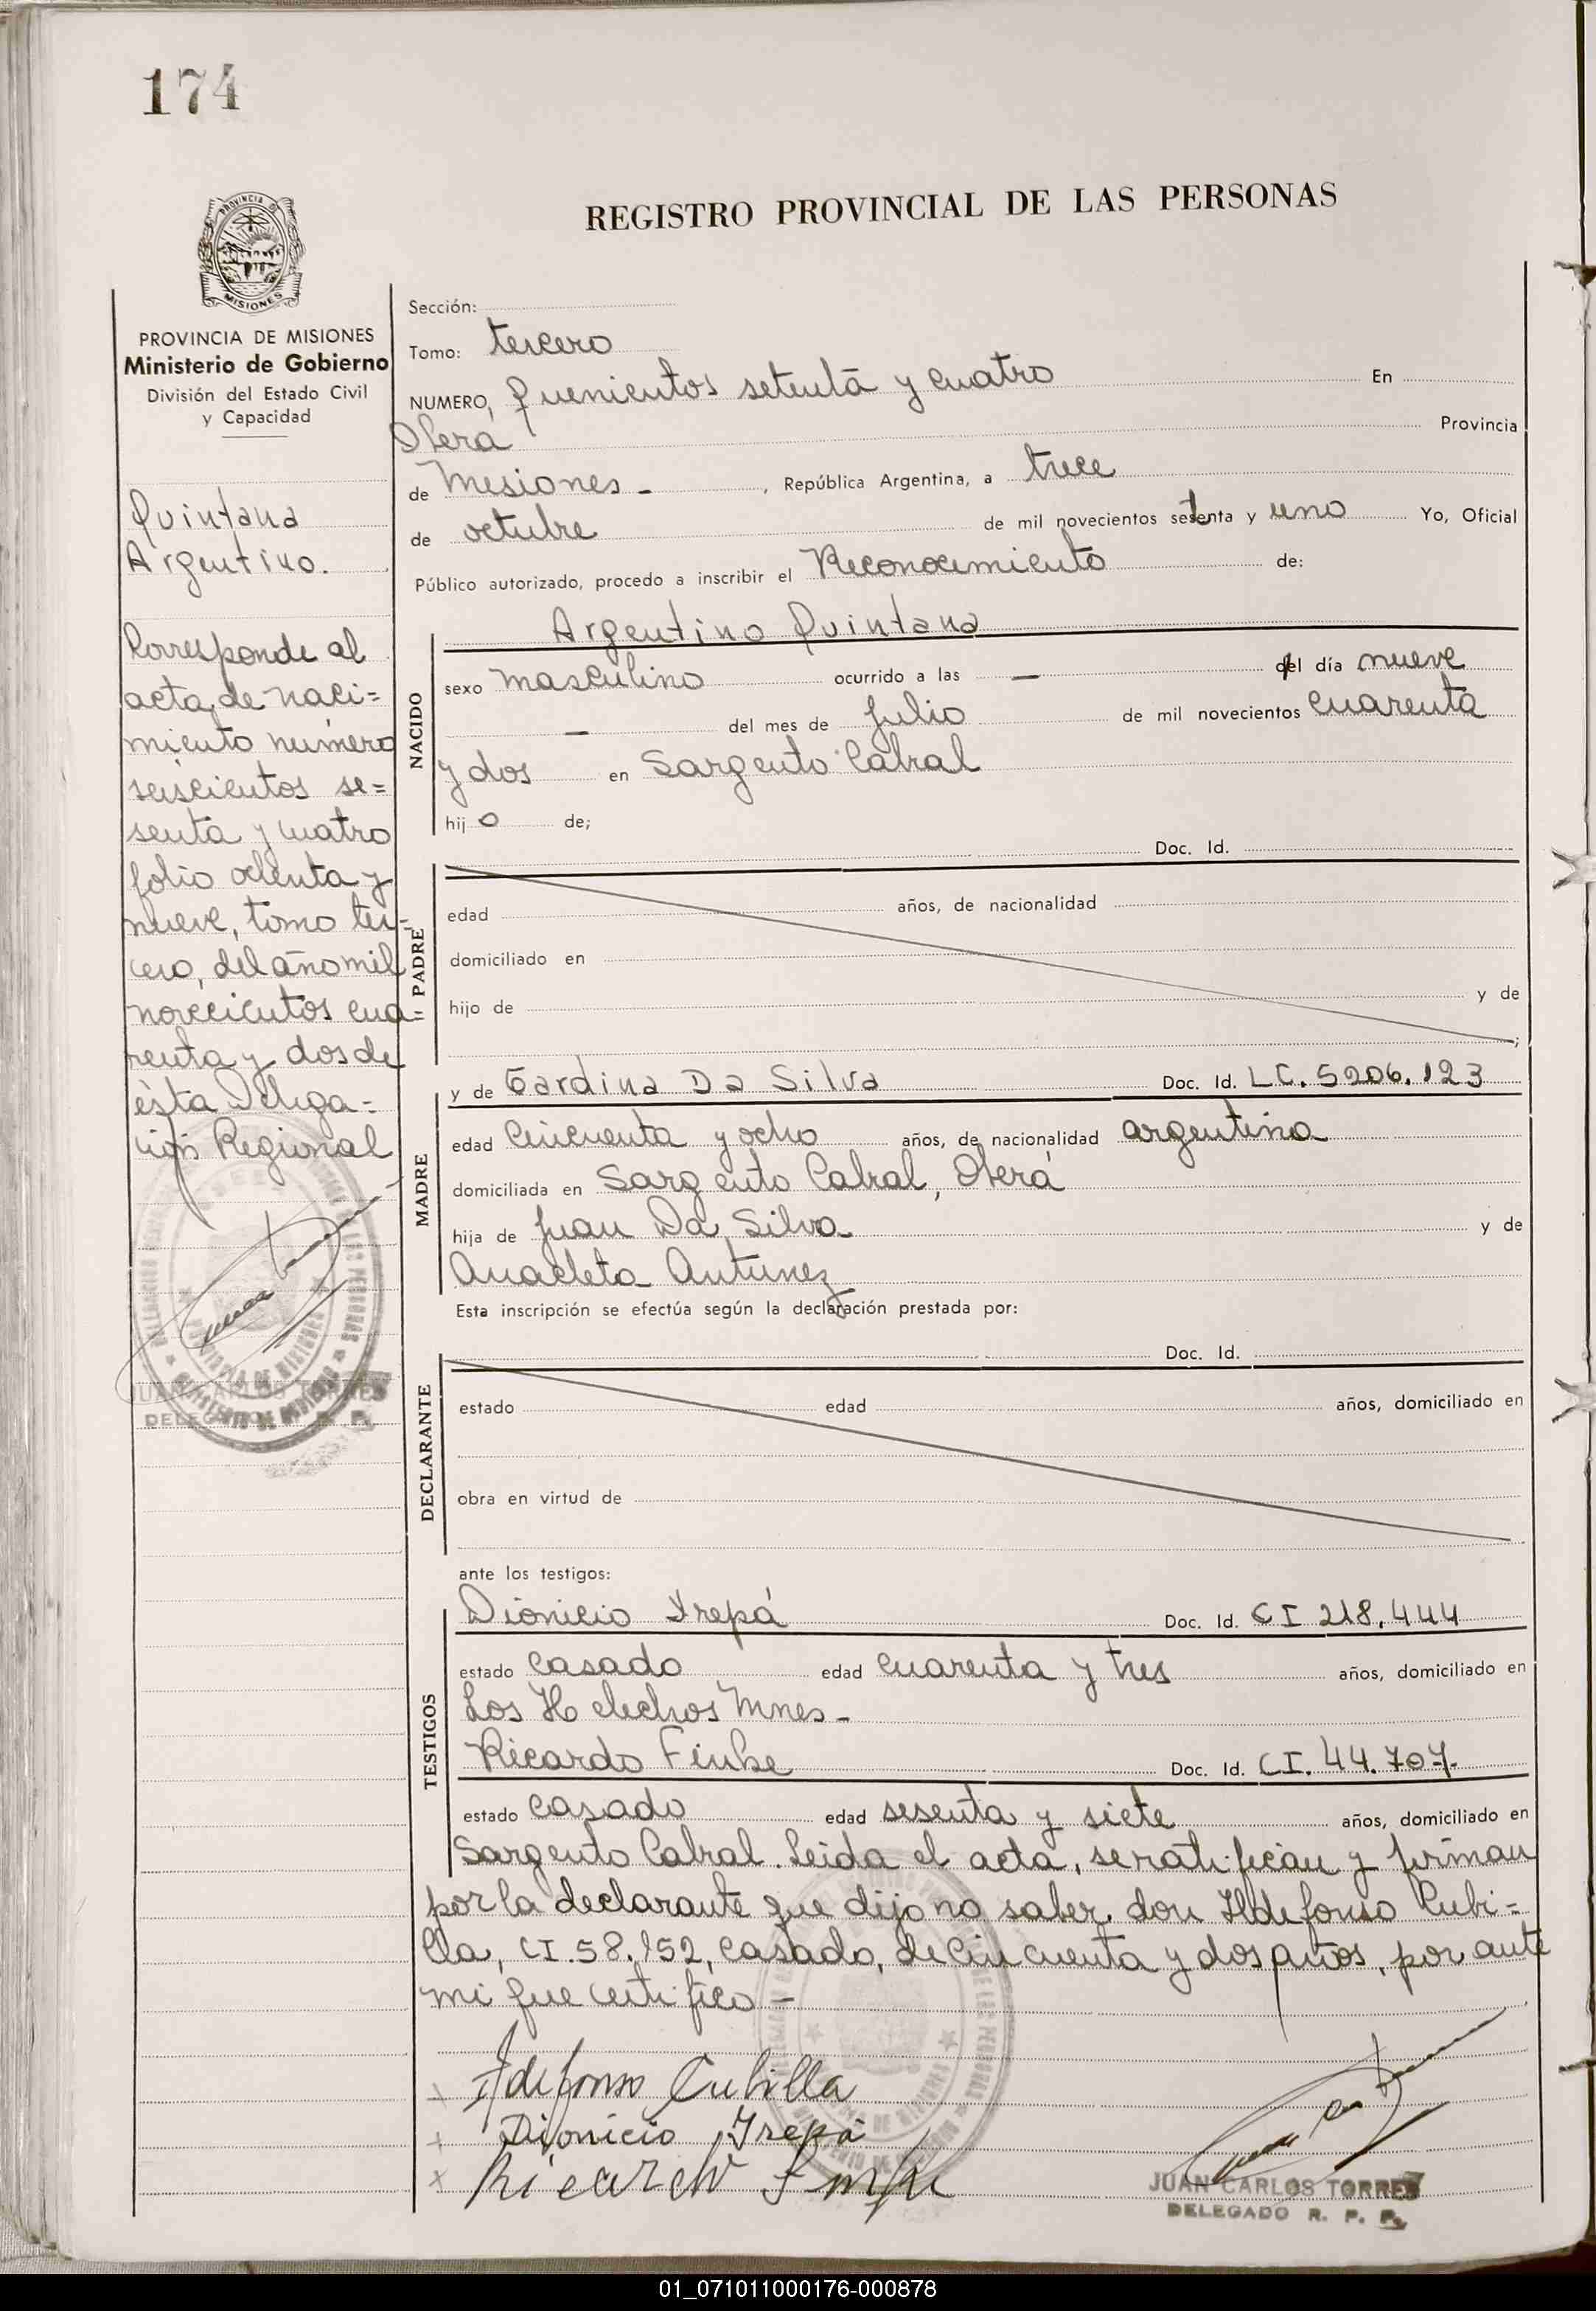 174
PROVINCIA DE
MISIONES
REGISTRO PROVINCIAL DE LAS PERSONAS
PROVINCIA DE MISIONES
Ministerio de Gobierno
División del Estado Civil
y Capacidad
Quintana
Argentino.
Corresponde al
acta de naci=
miento número
seiscientos se=
senta y cuatro
folio ochenta y
nueve, tomo ter=
cero, del año mil
novecientos cua=
renta y dos de
ésta Delega=
ción Regional
JUAN CARLOS TORRES
DELEGADO R. P. P.
Sección:
Tomo: tercero
NUMERO, quinientos setenta y cuatro En
Oberá Provincia
de Misiones - , República Argentina, a trece
de octubre de mil novecientos setenta y uno Yo, Oficial
Público autorizado, procedo a inscribir el Reconocimiento de:
Argentino Quintana
NACIDO
sexo masculino ocurrido a las — del día nueve
— del mes de Julio de mil novecientos cuarenta
y dos en Sargento Cabral
hijo de;
Doc. Id.
PADRE
edad años, de nacionalidad
domiciliado en
hijo de y de
;
MADRE
y de Gardina Da Silva Doc. Id. LC. 5206.123
edad cincuenta y ocho años, de nacionalidad argentina
domiciliada en Sargento Cabral, Oberá
hija de Juan Da Silva y de
Anacleta Antunez
Esta inscripción se efectúa según la declaración prestada por:
Doc. Id.
DECLARANTE
estado edad años, domiciliado en
obra en virtud de
ante los testigos:
TESTIGOS
Dionicio Yrepá Doc. Id. CI 218.444
estado casado edad cuarenta y tres años, domiciliado en
Los Helechos Mnes -
Ricardo Finke Doc. Id. CI. 44.707.
estado casado edad sesenta y siete años, domiciliado en
Sargento Cabral. Leida el acta, se ratifican y firman
por la declarante que dijo no saber don Ildefonso Cubi=
lla, CI. 58.152, casado, de cincuenta y dos años, por ante
mi que certifico -
x Ildefonso Cubilla
x Dionicio Yrepa
x Ricardo Finke
JUAN CARLOS TORRES
DELEGADO R. P. P.
01_071011000176-000878